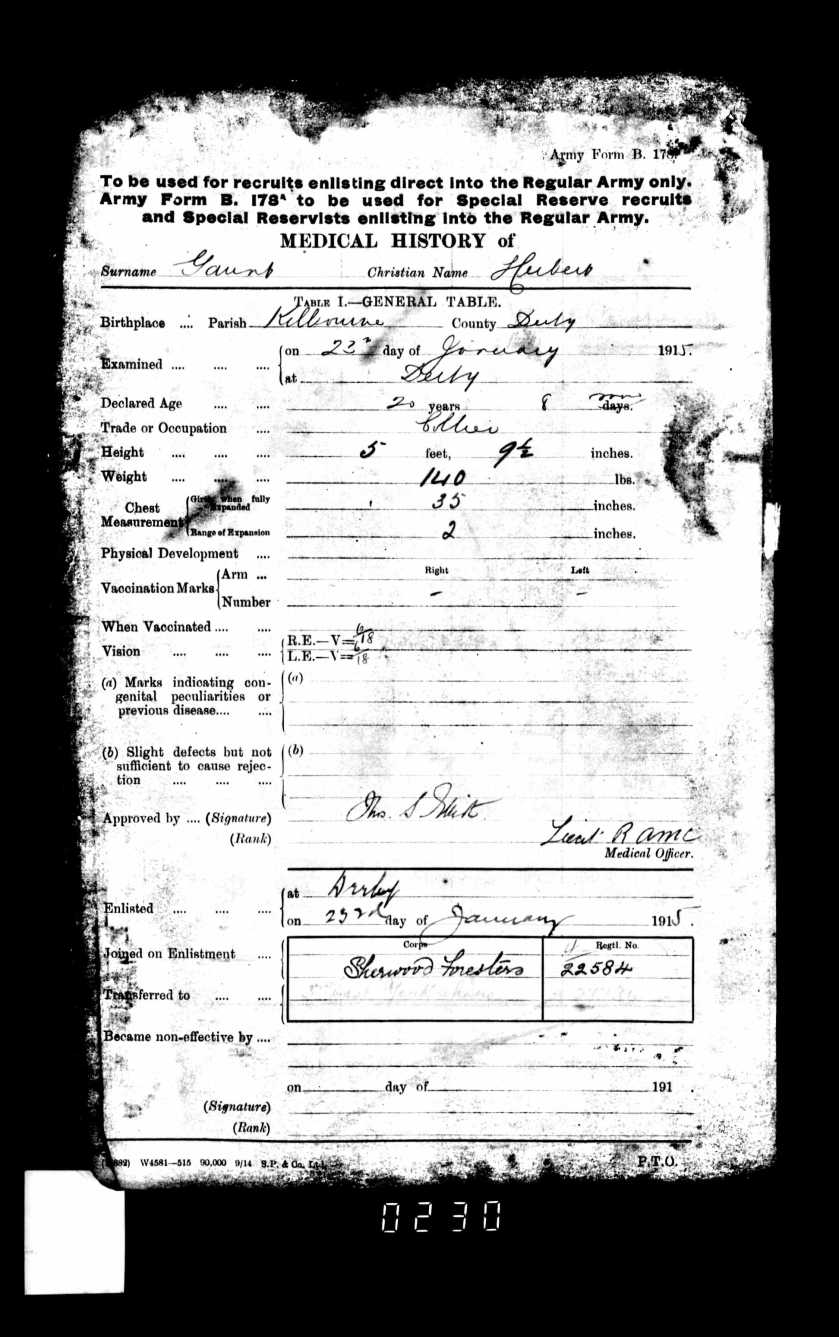 Army Form B. 178.
To be used for recruits enlisting direct into the Regular Army only.
Army Form B. 178A to be used for Special Reserve recruits
and Special Reservists enlisting into the Regular Army.
MEDICAL HISTORY of
Surname Gaunt Christian Name Herbert
TABLE I.—GENERAL TABLE.
Birthplace .... Parish Kilbourne County Derby
Examined .... .... .... on 23rd day of January 1915.
at Derby
Declared Age .... .... 20 years 8 mos days.
Trade or Occupation .... Collier
Height .... .... .... 5 feet, 9½ inches.
Weight .... .... .... 140 lbs.
Chest Measurement Girth when fully Expanded 35 inches.
Range of Expansion 2 inches.
Physical Development ....
Vaccination Marks Arm ... Right Left
Number - -
When Vaccinated .... ....
Vision .... .... .... R.E.—V= 6/18
L.E.—V= 6/18
(a) Marks indicating con- (a)
genital peculiarities or
previous disease.... ....
(b) Slight defects but not (b)
sufficient to cause rejec-
tion .... .... ....
Approved by .... (Signature) Thos. S.
(Rank) Lieut RAMC
Medical Officer.
Enlisted .... .... .... at Derby
on 23rd day of January 1915.
Corps Regtl. No.
Joined on Enlistment .... Sherwood Foresters 22584
Transferred to .... ....
Became non-effective by ....
on day of 191 .
(Signature)
(Rank)
W4581—515 90,000 9/14 S.P. & Co. Ltd.
P.T.O.
0230